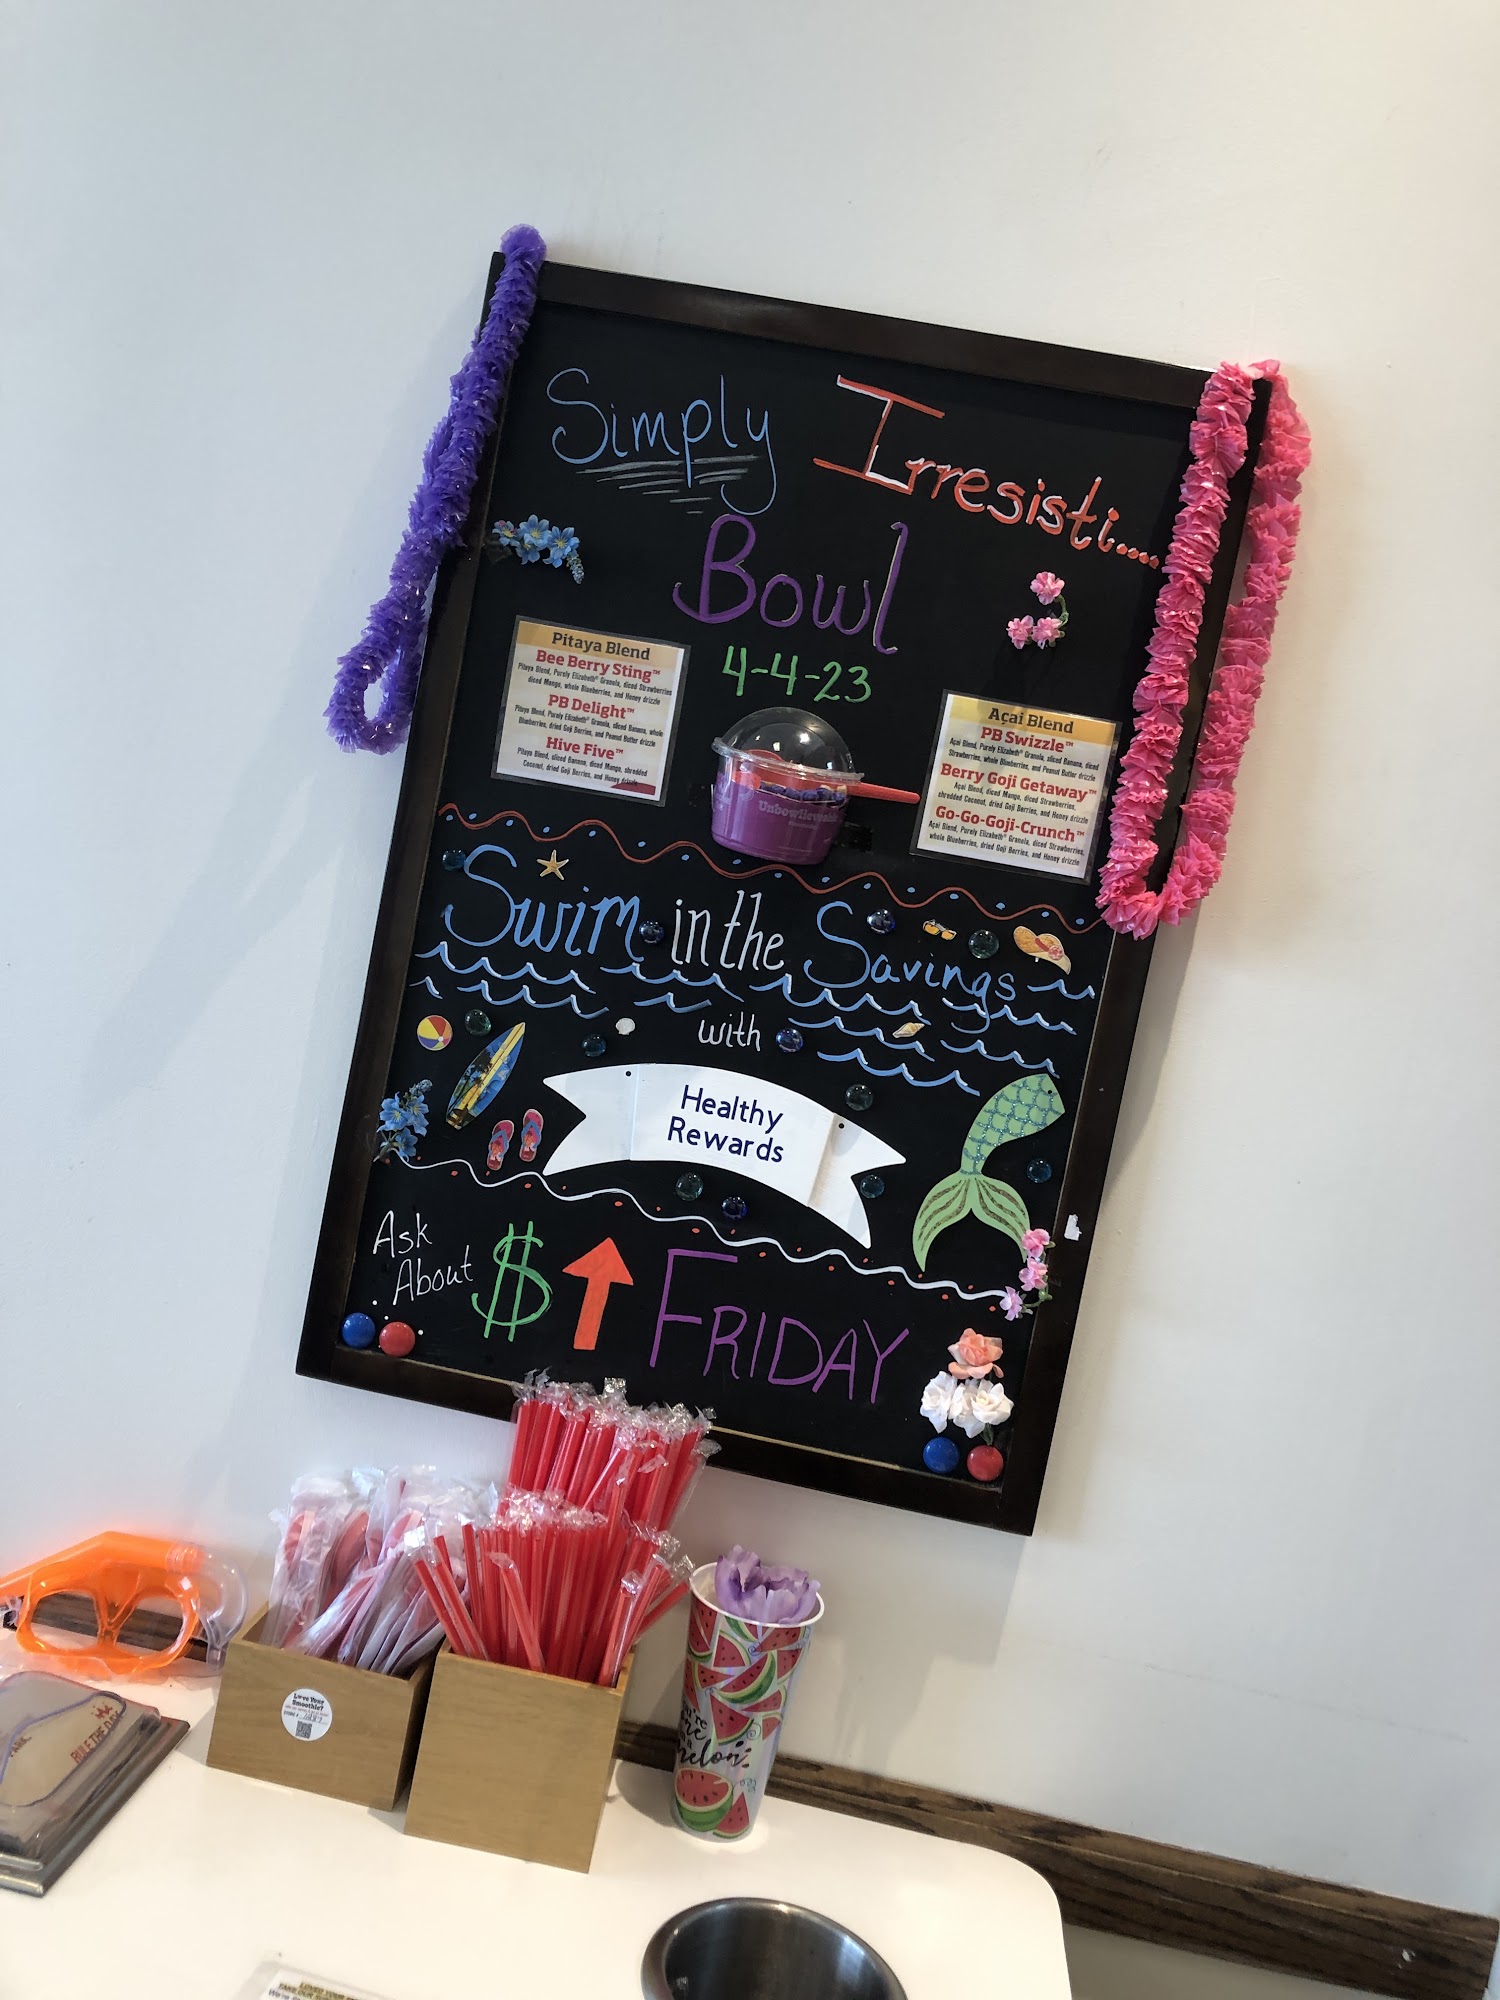 Simply Irresisti.....
Bowl
4-4-23
Pitaya Blend
Bee Berry Sting™
Pitaya Blend, Purely Elizabeth® Granola, diced Strawberries
diced Mango, whole Blueberries, and Honey drizzle
PB Delight™
Pitaya Blend, Purely Elizabeth® Granola, sliced Banana, whole
Blueberries, dried Goji Berries, and Peanut Butter drizzle
Hive Five™
Pitaya Blend, sliced Banana, diced Mango, shredded
Coconut, dried Goji Berries, and Honey drizzle
Unbowlievable
Açai Blend
PB Swizzle™
Açai Blend, Purely Elizabeth® Granola, sliced Banana, diced
Strawberries, whole Blueberries, and Peanut Butter drizzle
Berry Goji Getaway™
Açai Blend, diced Mango, diced Strawberries,
shredded Coconut, dried Goji Berries, and Honey drizzle
Go-Go-Goji-Crunch™
Açai Blend, Purely Elizabeth® Granola, diced Strawberries,
whole Blueberries, dried Goji Berries, and Honey drizzle
Swim in the Savings
with
Healthy
Rewards
Ask
About $ ↑ FRIDAY
Love Your
Smoothie?
melon
PARK
RULE THE DAY
LOVED YOUR
TAKE OUR